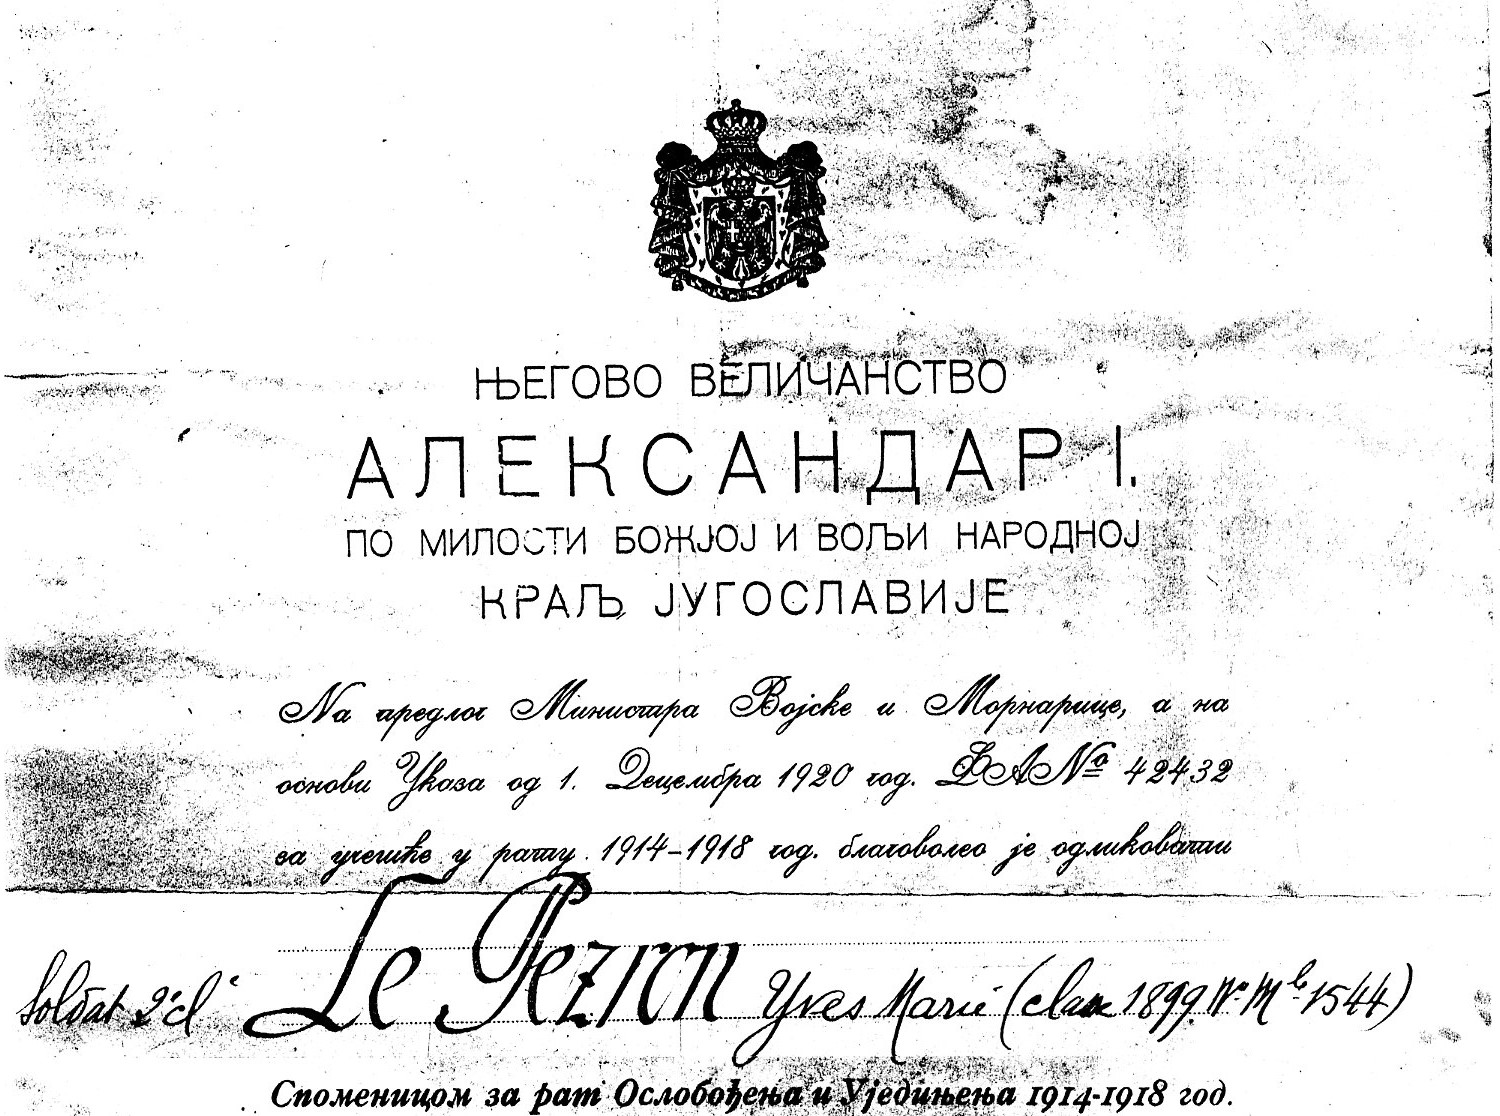 ЊЕГОВО ВЕЛИЧАНСТВО
АЛЕКСАНДАР I.
ПО МИЛОСТИ БОЖЈОЈ И ВОЉИ НАРОДНОЈ
КРАЉ ЈУГОСЛАВИЈЕ
На предлог Министра Војске и Морнарице, а на
основи Указа од 1. Децембра 1920 год. ФА№ 42432
за учешће у рату 1914-1918 год. благоволео је одликовати
Soldat 2e cl Le Pezron Yves Marie (classe 1899 No Mle 1544)
Споменицом за рат Ослобођења и Уједињења 1914-1918 год.